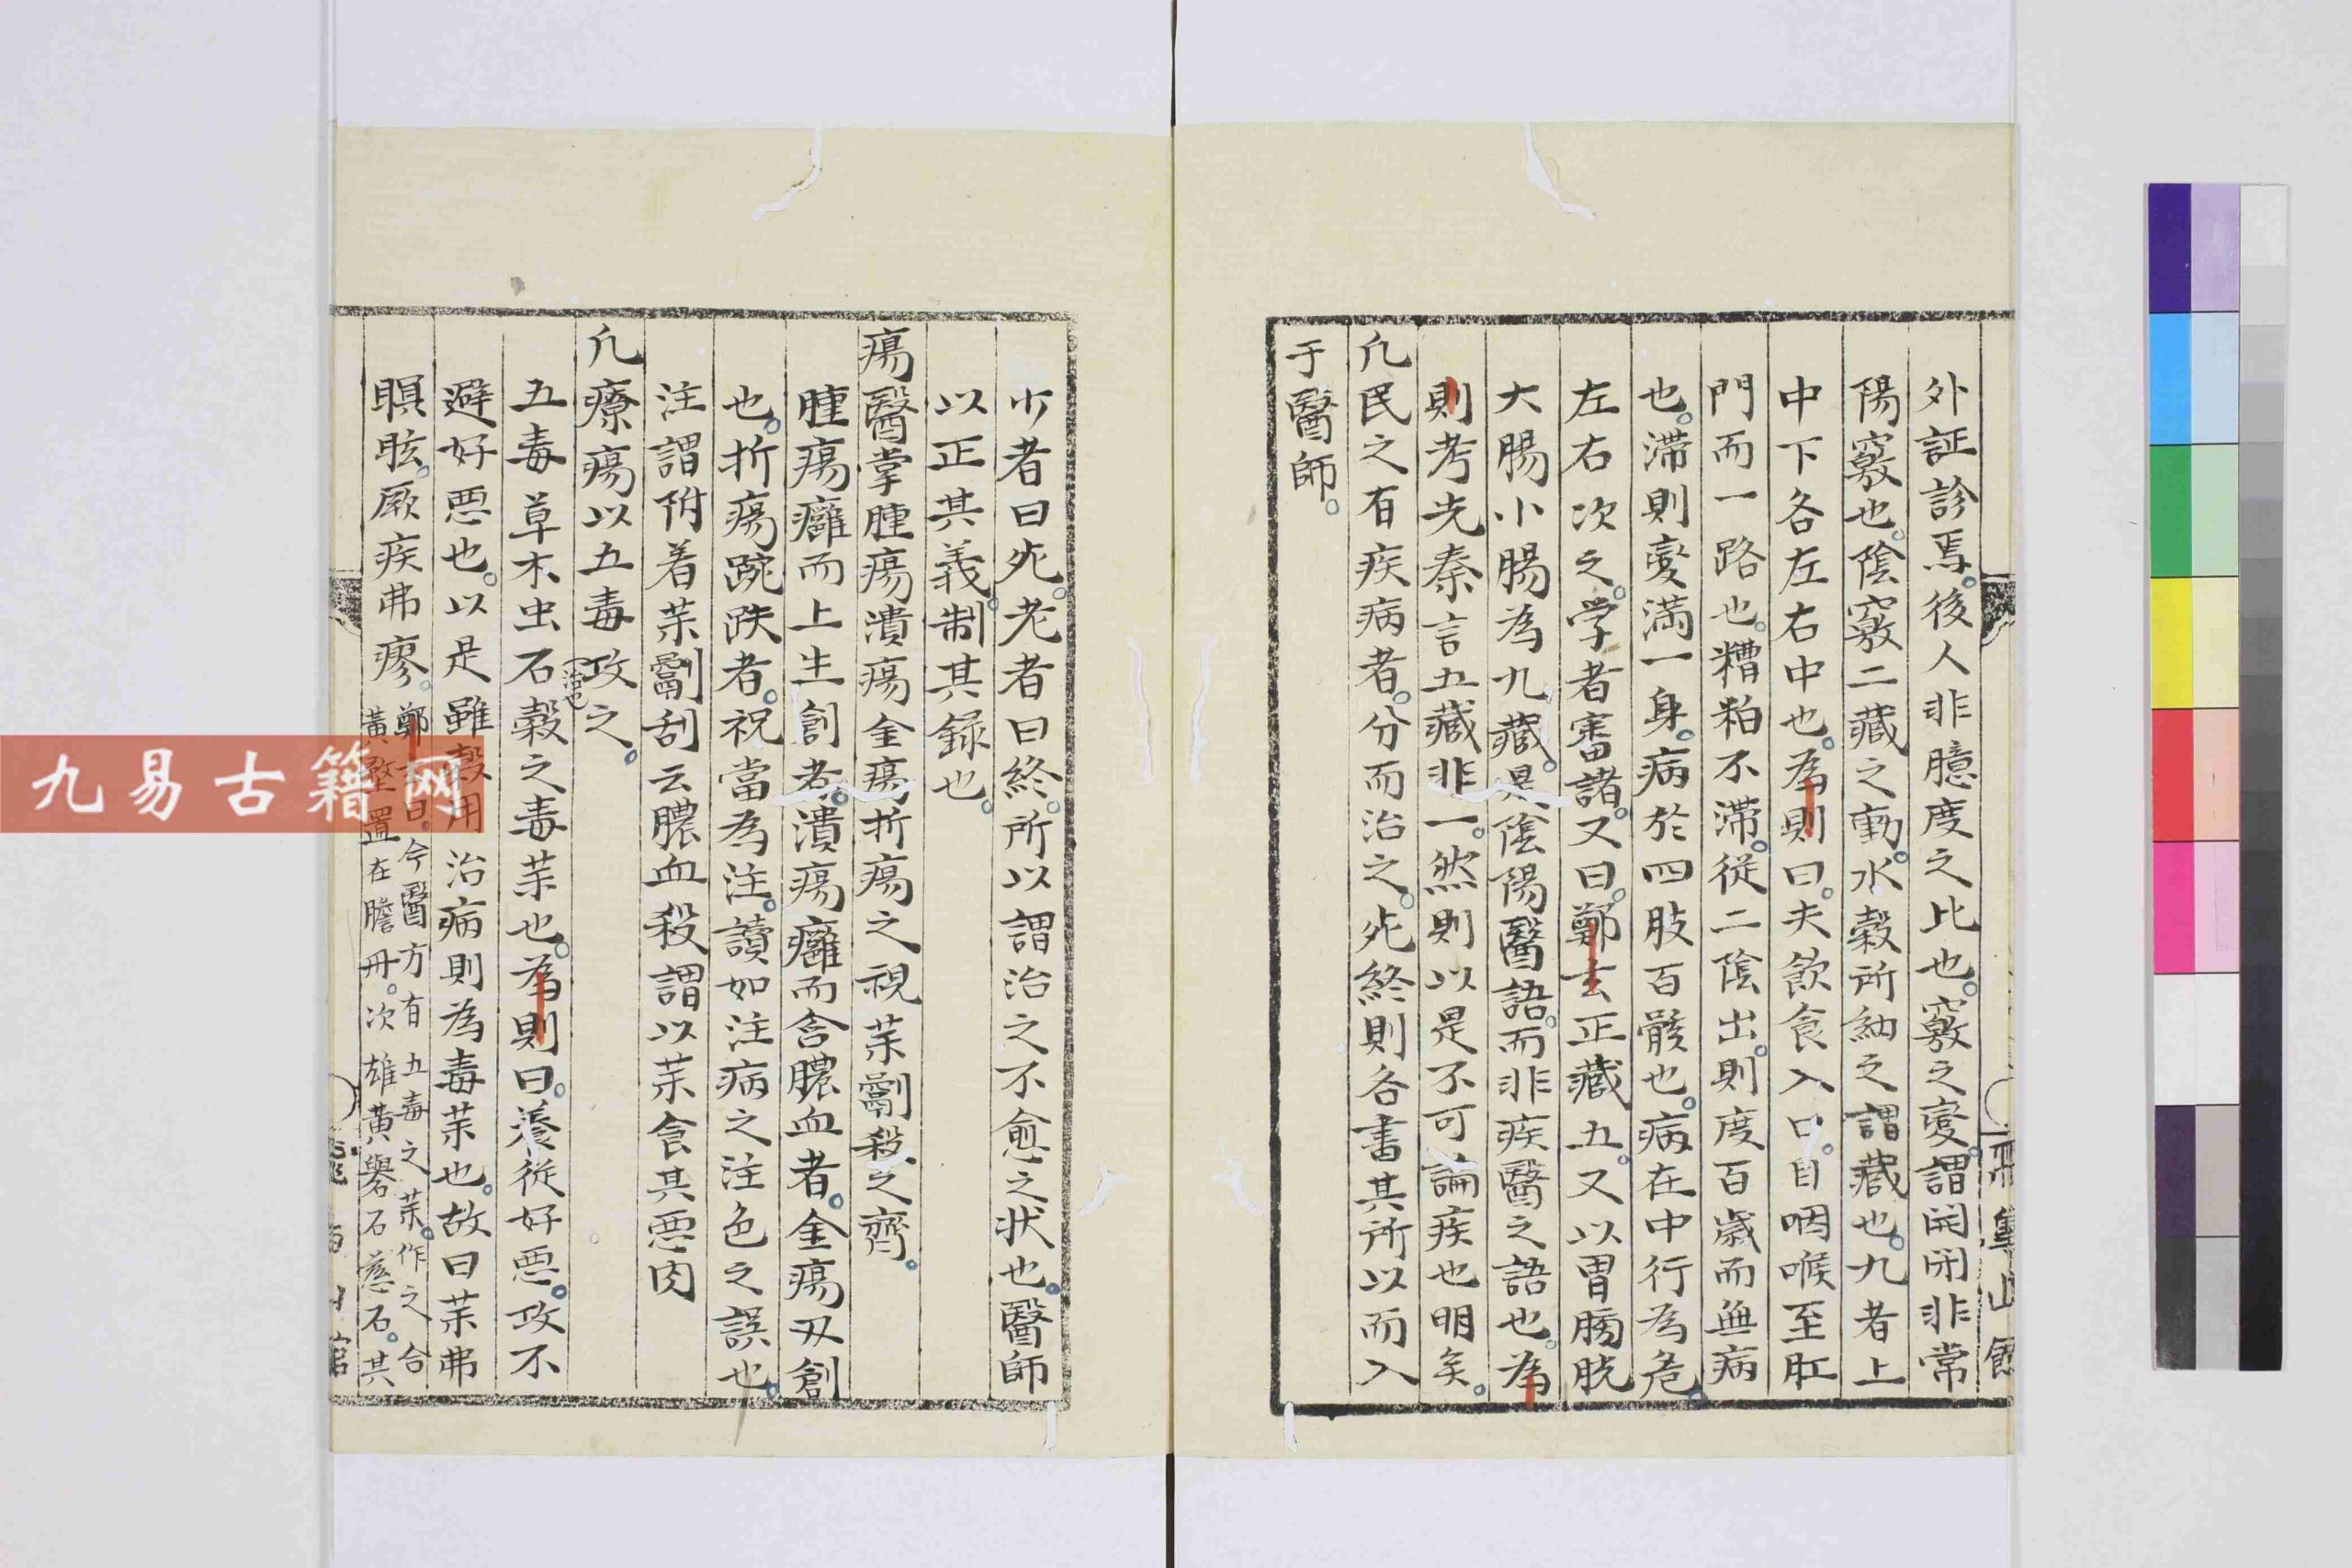 外証診焉。後人非臆度之比也。竅之变。謂開閉非常
陽竅也。陰竅二藏之動。水穀所納之謂藏也。九者上
中下各左右中也。為則曰。夫飲食入口。自咽喉至肛
門而一路也。糟粕不滞。從二陰出。則度百歳而無病
也。滞則变満一身。病於四肢百骸也。病在中行為危。
左右次之。学者審諸。又曰。鄭玄正藏五。又以胃膀胱
大腸小腸為九藏。是陰陽醫語。而非疾醫之語也。為
則考先秦言五藏非一。然則以是不可論疾也明矣。
凢民之有疾病者。分而治之。死終則各書其所以而入
于醫師。
少者曰死。老者曰終。所以謂治之不愈之状也。醫師
以正其義。制其録也。
瘍醫掌腫瘍潰瘍金瘍折瘍之祝茶劀殺之齊。
腫瘍癰而上生創者。潰瘍癰而含膿血者。金瘍刃創
也。折瘍踠跌者。祝當為注。讀如注病之注。色之誤也。
注謂附着茶劀刮云膿血殺謂以茶食其悪肉
凢療瘍以五毒攻之。
治也
五毒草木虫石穀之毒茶也。為則曰。養從好悪。攻不
避好悪也。以是雖穀用治病則為毒茶也。故曰茶弗
瞑眩。厥疾弗瘳。
鄭玄曰。今醫方有五毒之茶。作之合
黃堥置在膽冊。次雄黃礜石慈石。其
九易古籍网